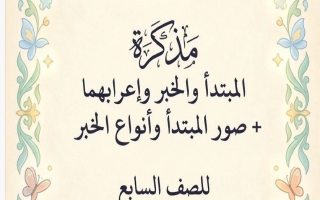 مَذكَرَة
المبتدأ والخبر وإعرابهما
+ صور المبتدأ وأنواع الخبر
للصف السابع